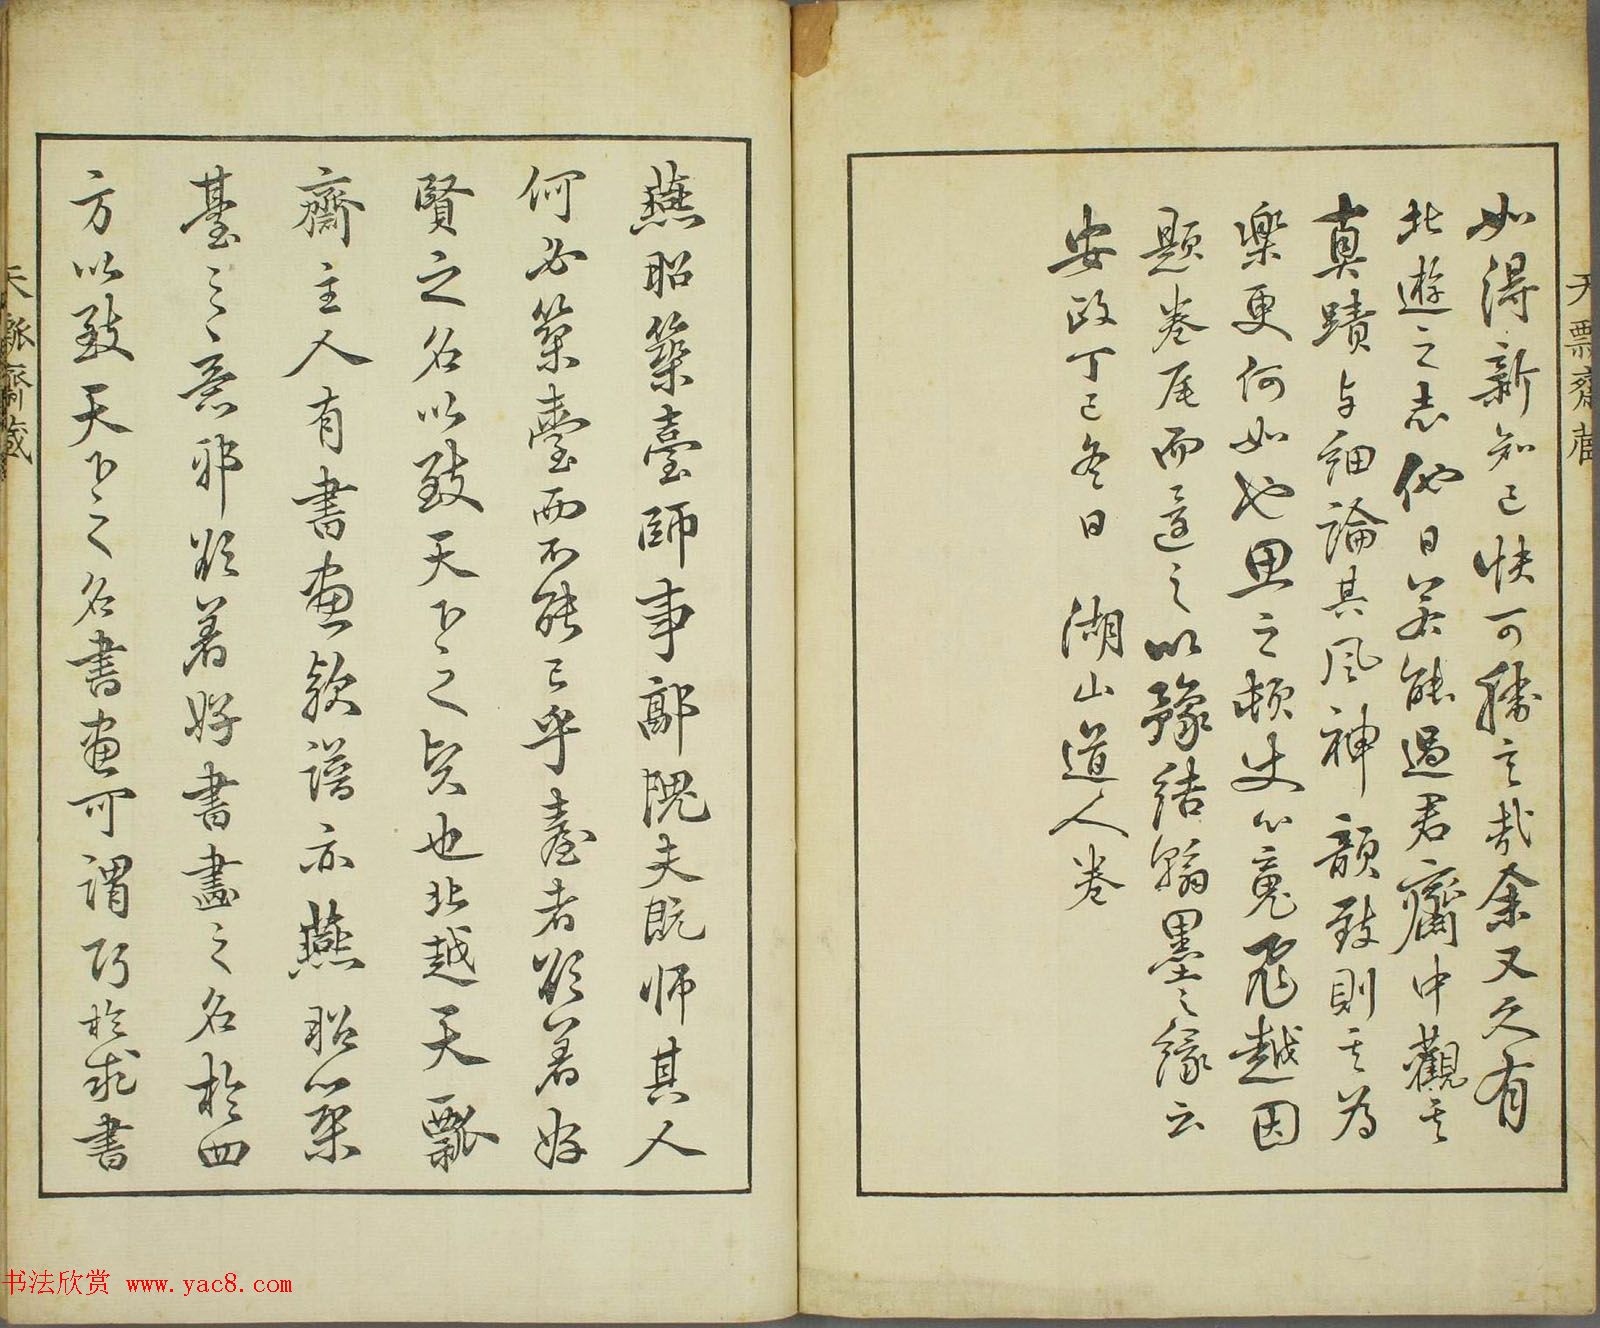 如得新知己快可勝言哉余又久有
北遊之志他日若能過君齋中觀其
真蹟与細論其風神韻致則其為
樂更何如也思之頓使心魂飛越因
題卷尾而還之以豫結翰墨之緣云
安政丁巳冬日 湖山道人卷
天瓢齋藏
燕昭築臺師事郭隗夫既師其人
何必築臺而不能已乎臺者欲著好
賢之名以致天下之賢也北越天瓢
齋主人有書畫款譜亦燕昭築
臺之意邪欲著好書畫之名於四
方以致天下之名書画可謂巧於求書
天瓢齋藏
书法欣赏 www.yac8.com